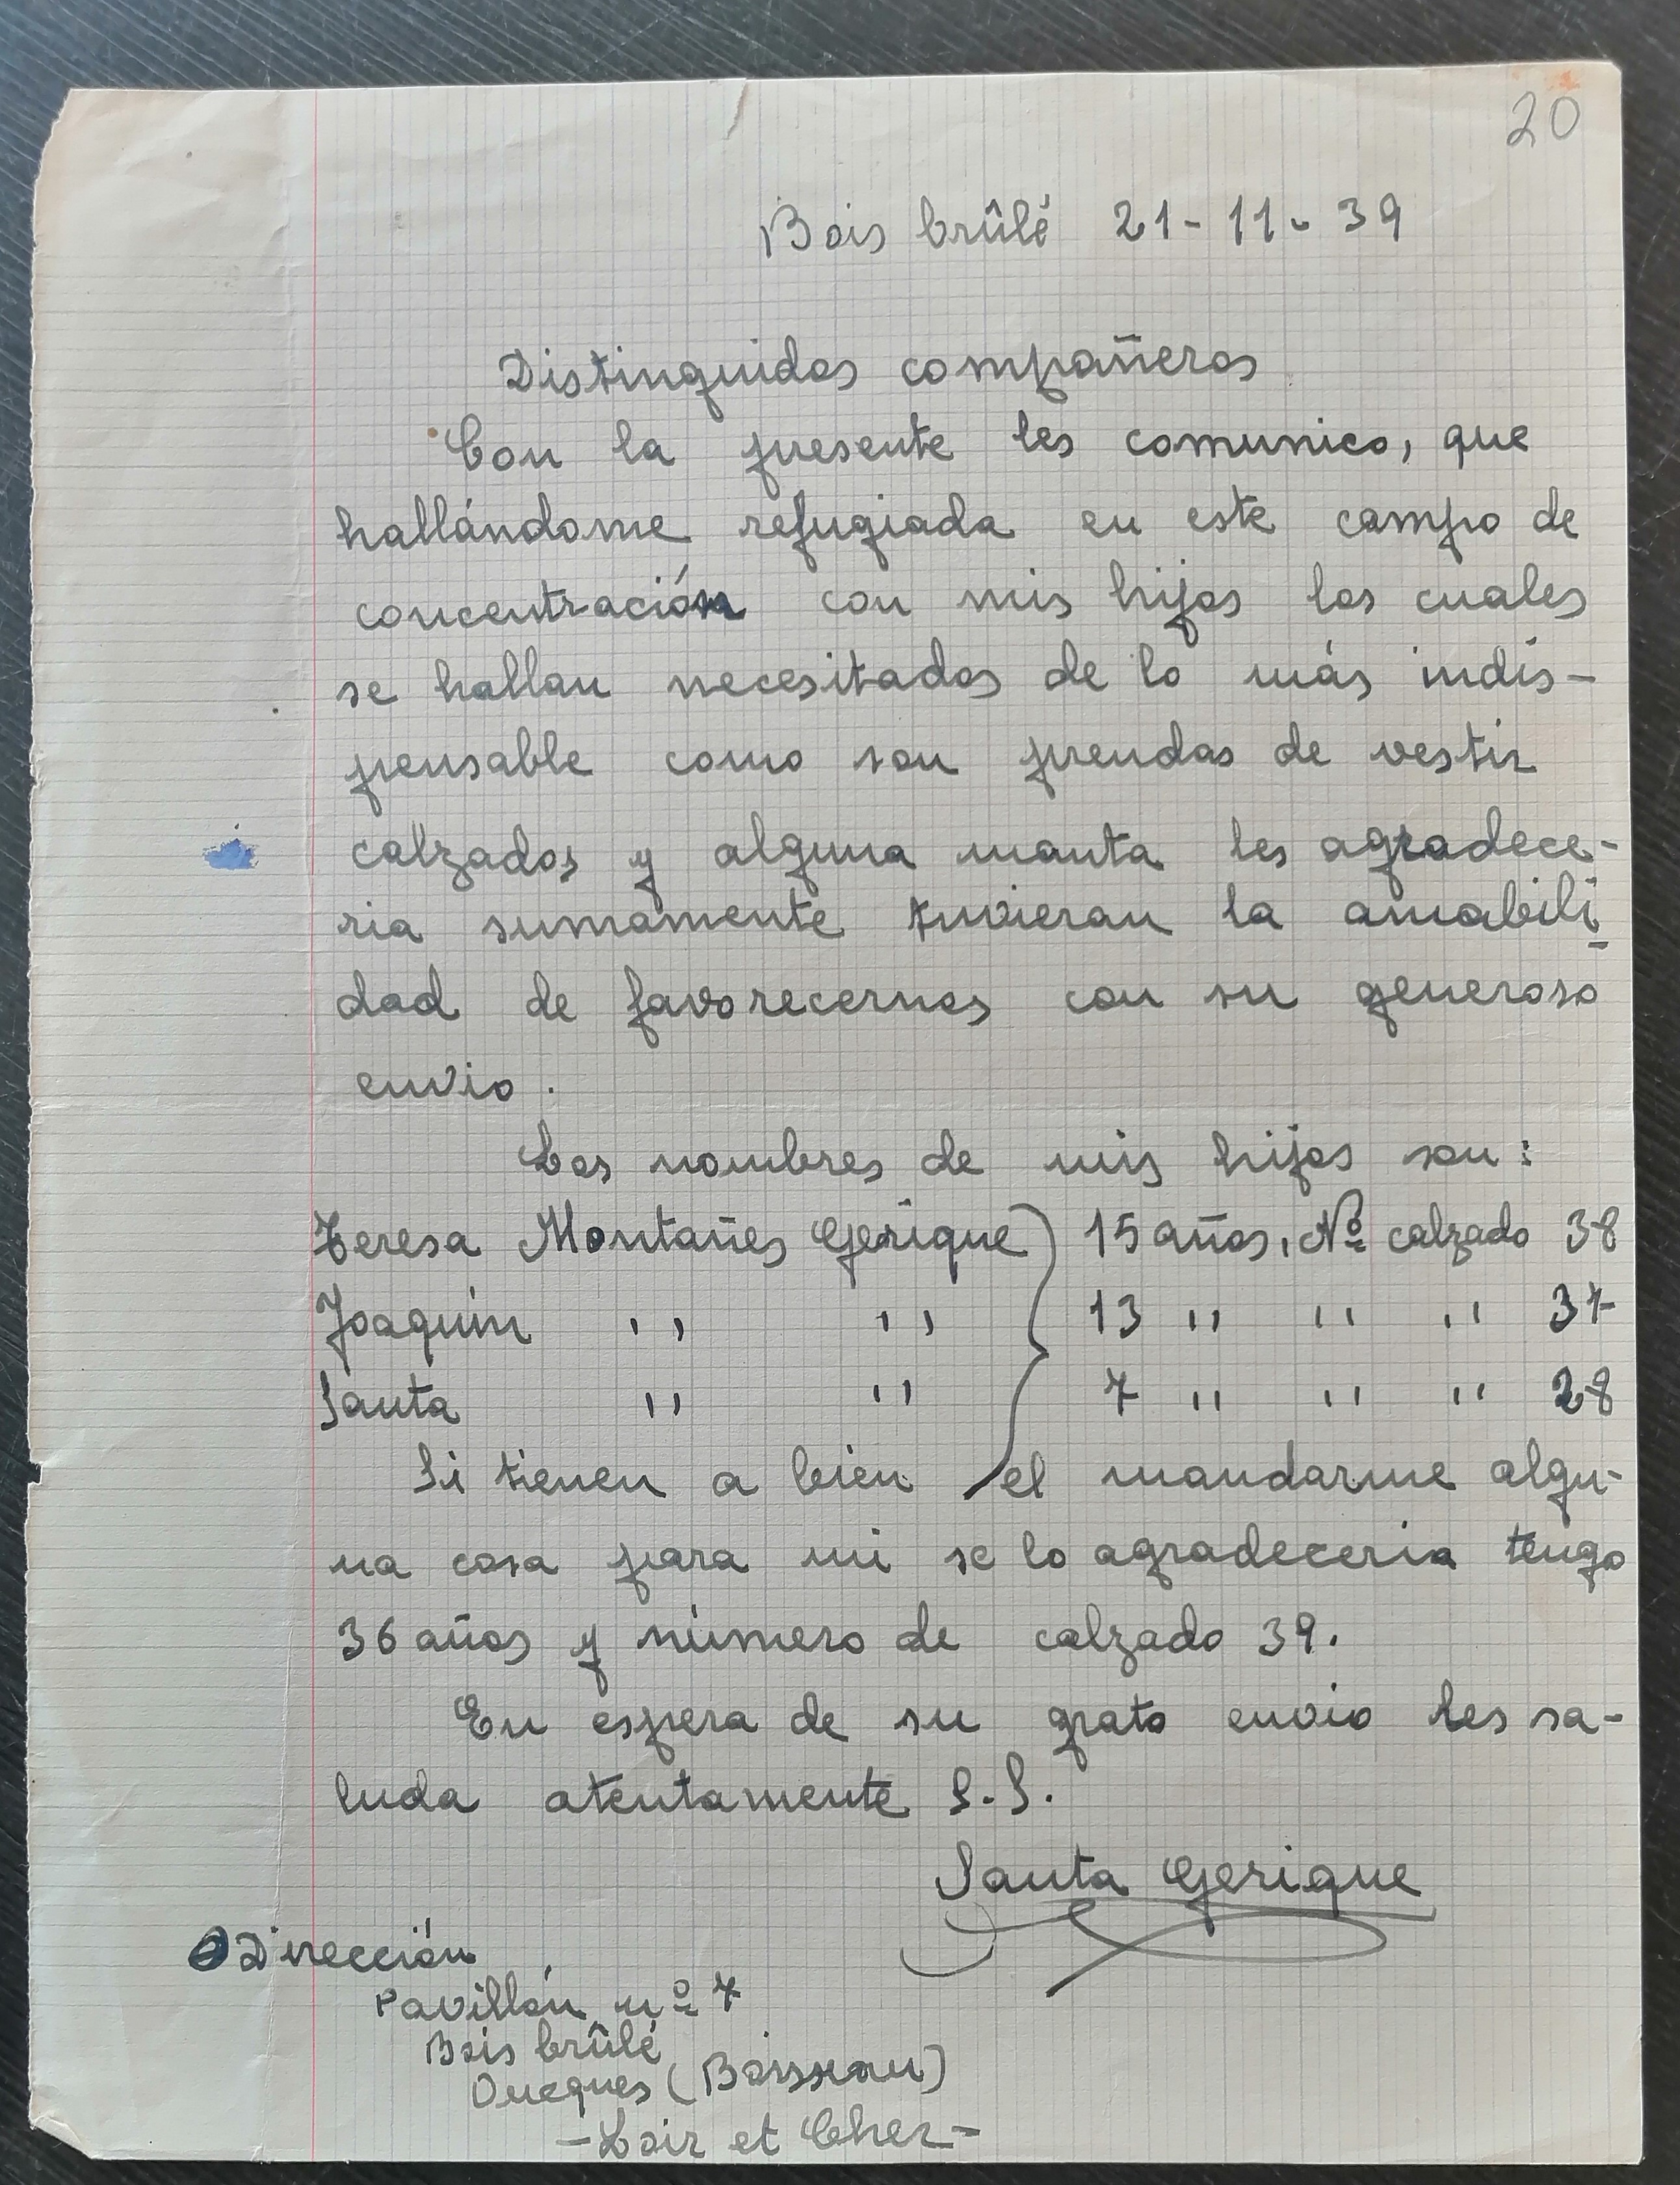 20
Bois brûlé 21-11-39
Distinguidos compañeros
Con la presente les comunico, que
hallándome refugiada en este campo de
concentración con mis hijos los cuales
se hallan necesitados de lo más indis-
pensable como son prendas de vestir
calzados y alguna manta les agradece-
ria sumamente tuvieran la amabili-
dad de favorecernos con su generoso
envio.
Los nombres de mis hijos son:
Teresa Montañes Gerique } 15 años, Nº calzado 38
Joaquín " " 13 " " " 37
Santa " " 7 " " " 28
Si tienen a bien el mandarme algu-
na cosa para mi se lo agradeceria tengo
36 años y número de calzado 39.
En espera de su grato envio les sa-
luda atentamente S.S.
Santa Gerique
Dirección
Pavillón nº 7
Bois brûlé
Oucques (Boisseau)
-Loir et Cher-